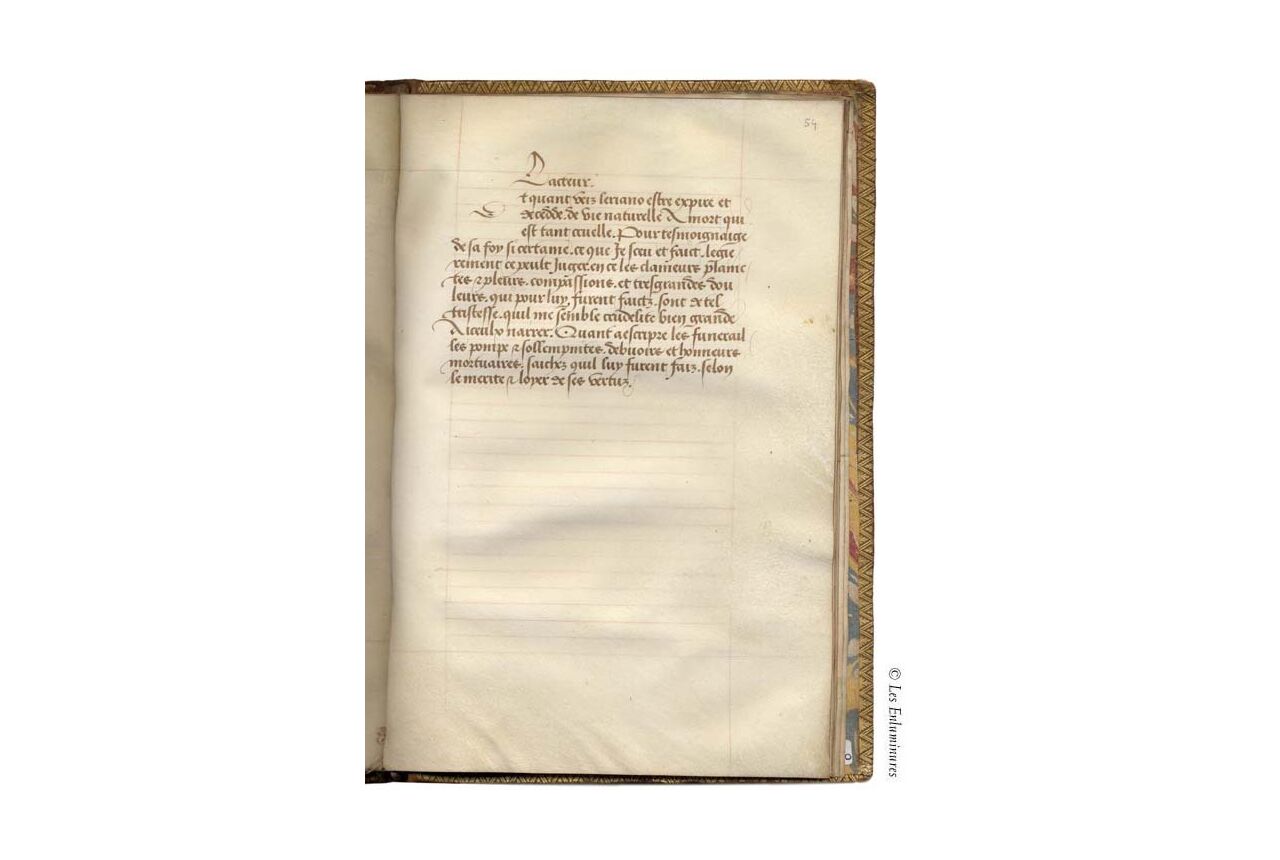 54
Lacteur.
t quant veiz leriano estre expire et
decedde. de vie naturelle A mort qui
est tant cruelle. Pour tesmoignaige
de sa foy si certaine. ce que Je sceu et faict. legie
rement ce peult Juger. en ce les clameurs plainc
tes & pleurs. compassions. et tresgrandes dou
leurs. qui pour luy, furent faictz. sont de tel
tristesse. quil me semble crudelite bien grande
A iceulx narrer. Quant a escripre les funerail
les pompe & sollempnites. debuoirs et honneurs
mortuaires. saichez quil luy furent faiz. selon
le merite & loyer de ses vertuz.
© Les Enluminures